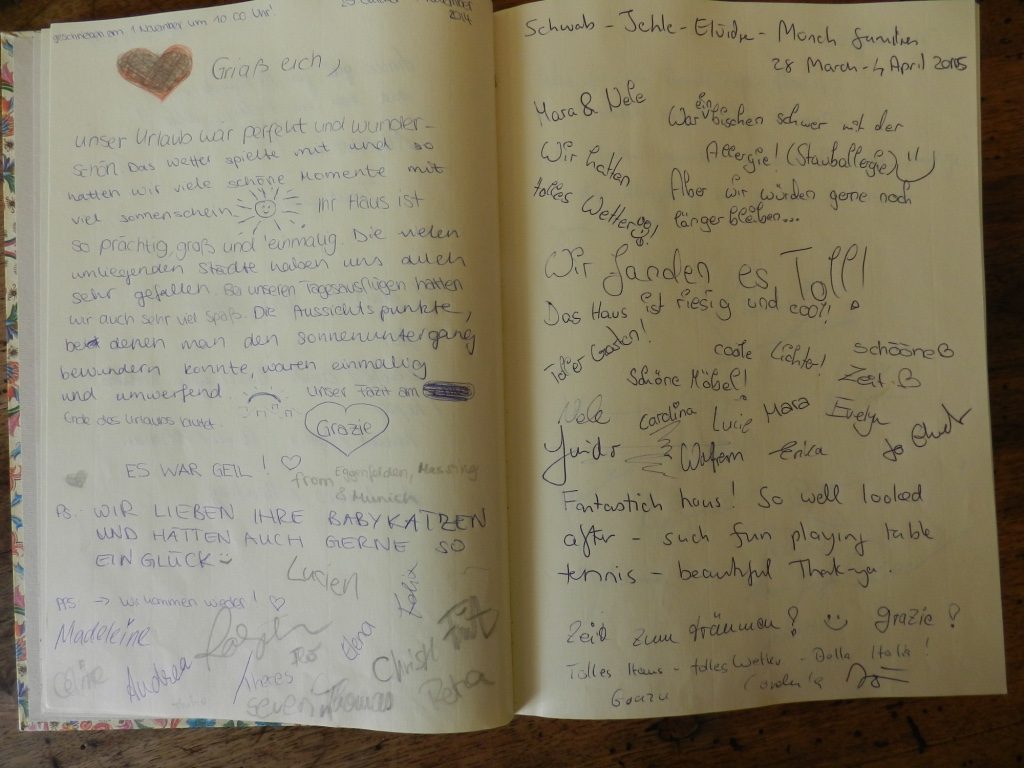 geschrieben am 1 November um 10:00 Uhr!
November
2014
Griaß eich,
unser Urlaub war perfekt und wunder-
schön. Das Wetter spielte mit und so
hatten wir viele schöne Momente mit
viel sonnenschein. Ihr Haus ist
so prächtig, groß und einmalig. Die vielen
umliegenden Städte haben uns auch
sehr gefallen. Bei unseren Tagesausflügen hatten
wir auch sehr viel Spaß. Die Aussichtspunkte,
bei denen man den sonnenuntergang
bewundern konnte, waren einmalig
und umwerfend. Unser Fazit am
Ende des Urlaubs lautet
Grazie
ES WAR GEIL!
from Eggenfelden, Massing
& Munich
PS. WIR LIEBEN IHRE BABYKATZEN
UND HATTEN AUCH GERNE SO
EIN GLÜCK
Lucien
Felix
PPS → wir kommen wieder!
Madeleine
Elena
Christl
Celine
Andrea
Theres
Petra
Schwab - Jehle - - Mönch familien
28 March - 4 April 2015
Mara & Nele
War ein bischen schwer mit der
Allergie! (Stauballergie)
Wir hatten
tolles Wetter!
Aber wir würden gerne noch
länger bleiben...
Wir fanden es Toll!
Das Haus ist riesig und cool!
Toller Garten!
coole Lichter!
schööne
Zeit
Schöne Möbel!
Nele
Carolina
Lucie
Mara
Evelyn
Guido
Wolfram
Erica
Fantastich haus! So well looked
after - such fun playing table
tennis - beautiful Thank-you.
Zeit zum träumen! grazie!
Tolles Haus - tolles Wetter - Bella Italia!